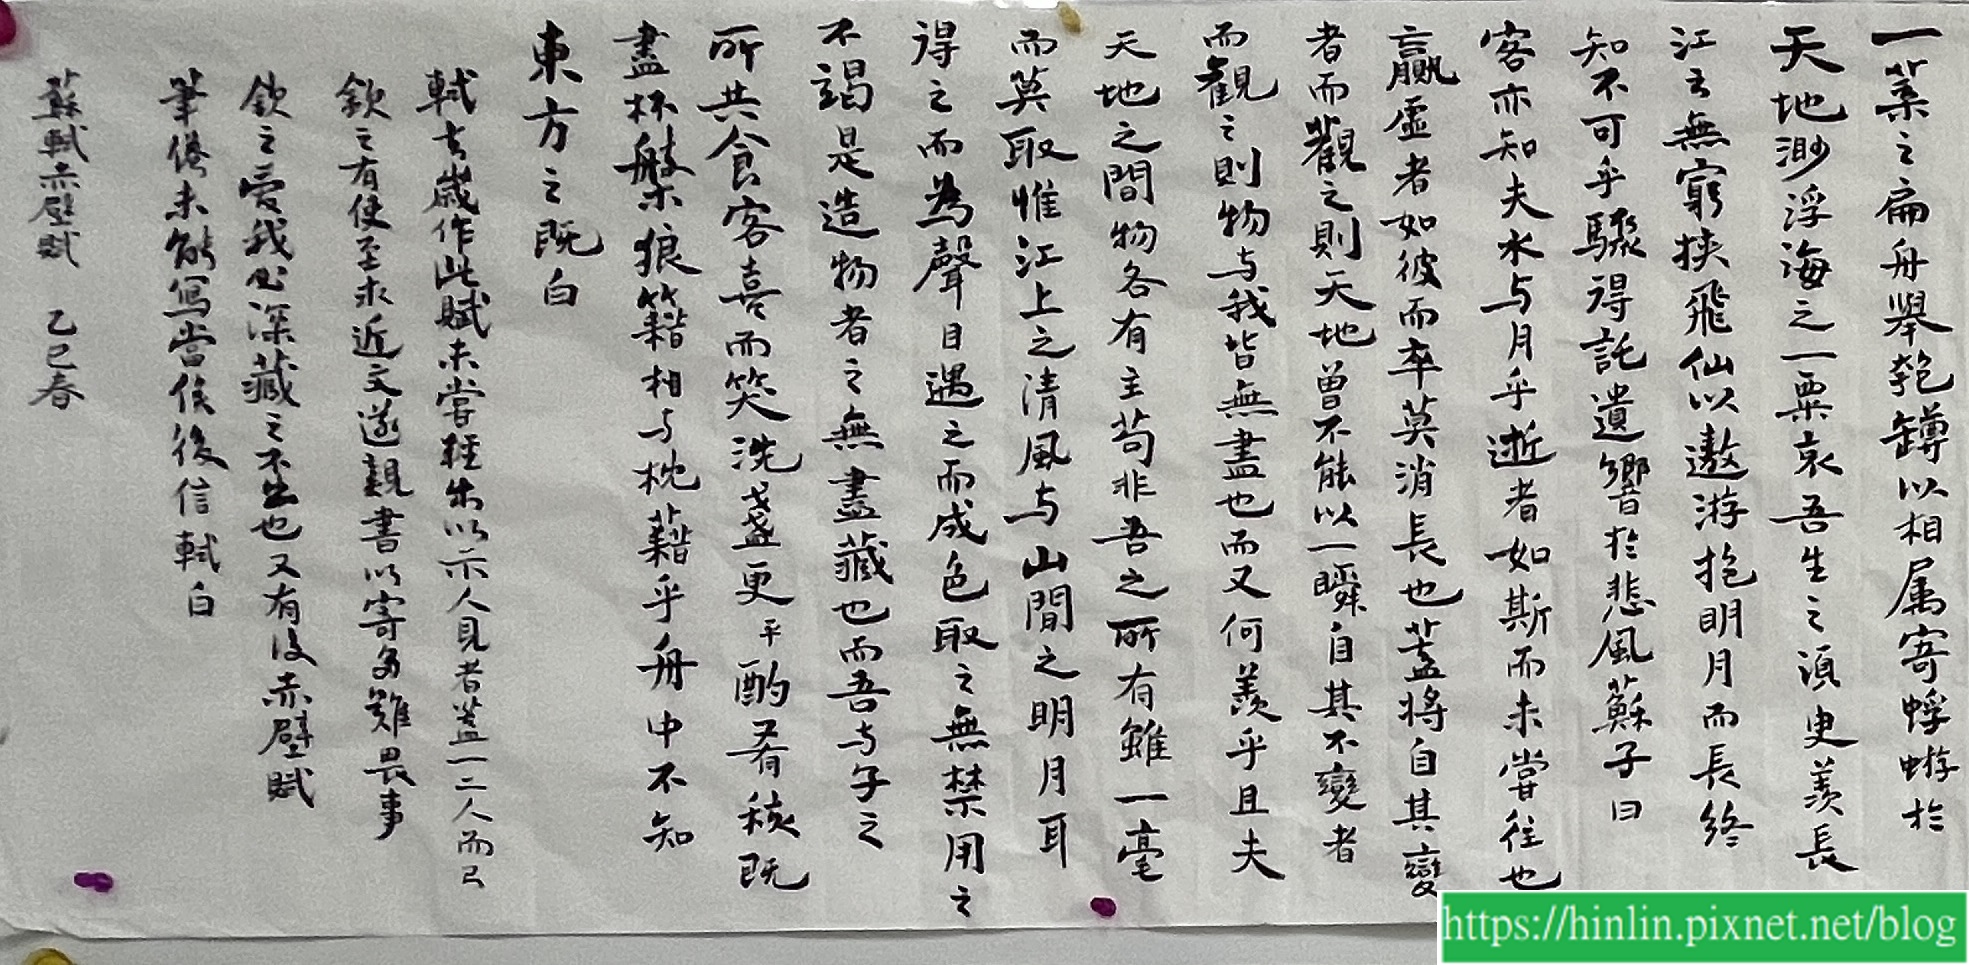 一葉之扁舟舉匏罇以相属寄蜉蝣於
天地渺浮海之一粟哀吾生之須臾羨長
江之無窮挾飛仙以遨游抱明月而長終
知不可乎驟得託遺響於悲風蘇子曰
客亦知夫水与月乎逝者如斯而未嘗往也
贏虛者如彼而卒莫消長也蓋將自其變
者而觀之則天地曾不能以一瞬自其不變者
而觀之則物与我皆無盡也而又何羨乎且夫
天地之間物各有主苟非吾之所有雖一毫
而莫取惟江上之清風与山間之明月耳
得之而為聲目遇之而成色取之無禁用之
不竭是造物者之無盡藏也而吾与子之
所共食客喜而笑洗盞更平酌肴核既
盡杯盤狼籍相与枕藉乎舟中不知
東方之既白
軾去歲作此賦未嘗輕出以示人見者蓋一二人而已
欽之有使至求近文遂親書以寄多難畏事
欽之愛我必深藏之不出也又有後赤壁賦
筆倦未能寫當俟後信軾白
蘇軾赤壁賦 乙巳春
https://hinlin.pixnet.net/blog